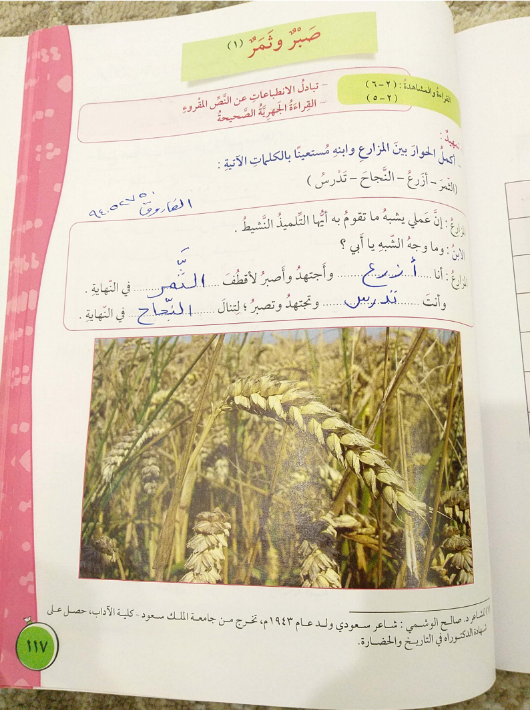 صَبْرٌ وثَمَرٌ (١)
القراءةُ والمشاهدةُ : (٢-٦)
(٢-٥)
- تبادلُ الانطباعاتِ عن النَّصِّ المقروءِ
- القراءةُ الجهريَّةُ الصَّحيحةُ
تمهيدٌ :
أكملُ الحوارَ بينَ المزارعِ وابنِهِ مُستعينًا بالكلماتِ الآتيةِ :
(الثَّمَرَ - أزرعُ - النَّجاحَ - تَدْرسُ)
الفاروق
المزارعُ : إنَّ عَملي يشبهُ ما تقومُ به أيُّها التِّلميذُ النَّشيطُ .
الابنُ : وما وجهُ الشَّبهِ يا أَبي ؟
المزارعُ : أنا أزرع وأجتهدُ وأصبرُ لأقطُفَ الثَّمر في النِّهايةِ .
وأنتَ تدرس وتجتهدُ وتصبرُ ؛ لِتنالَ النَّجاح في النِّهايةِ .
(١) الشاعر د. صالح الوشمي : شاعر سعودي ولد عام ١٩٤٣م، تخرج من جامعة الملك سعود - كلية الآداب، حصل على
شهادة الدكتوراه في التاريخ والحضارة.
١١٧